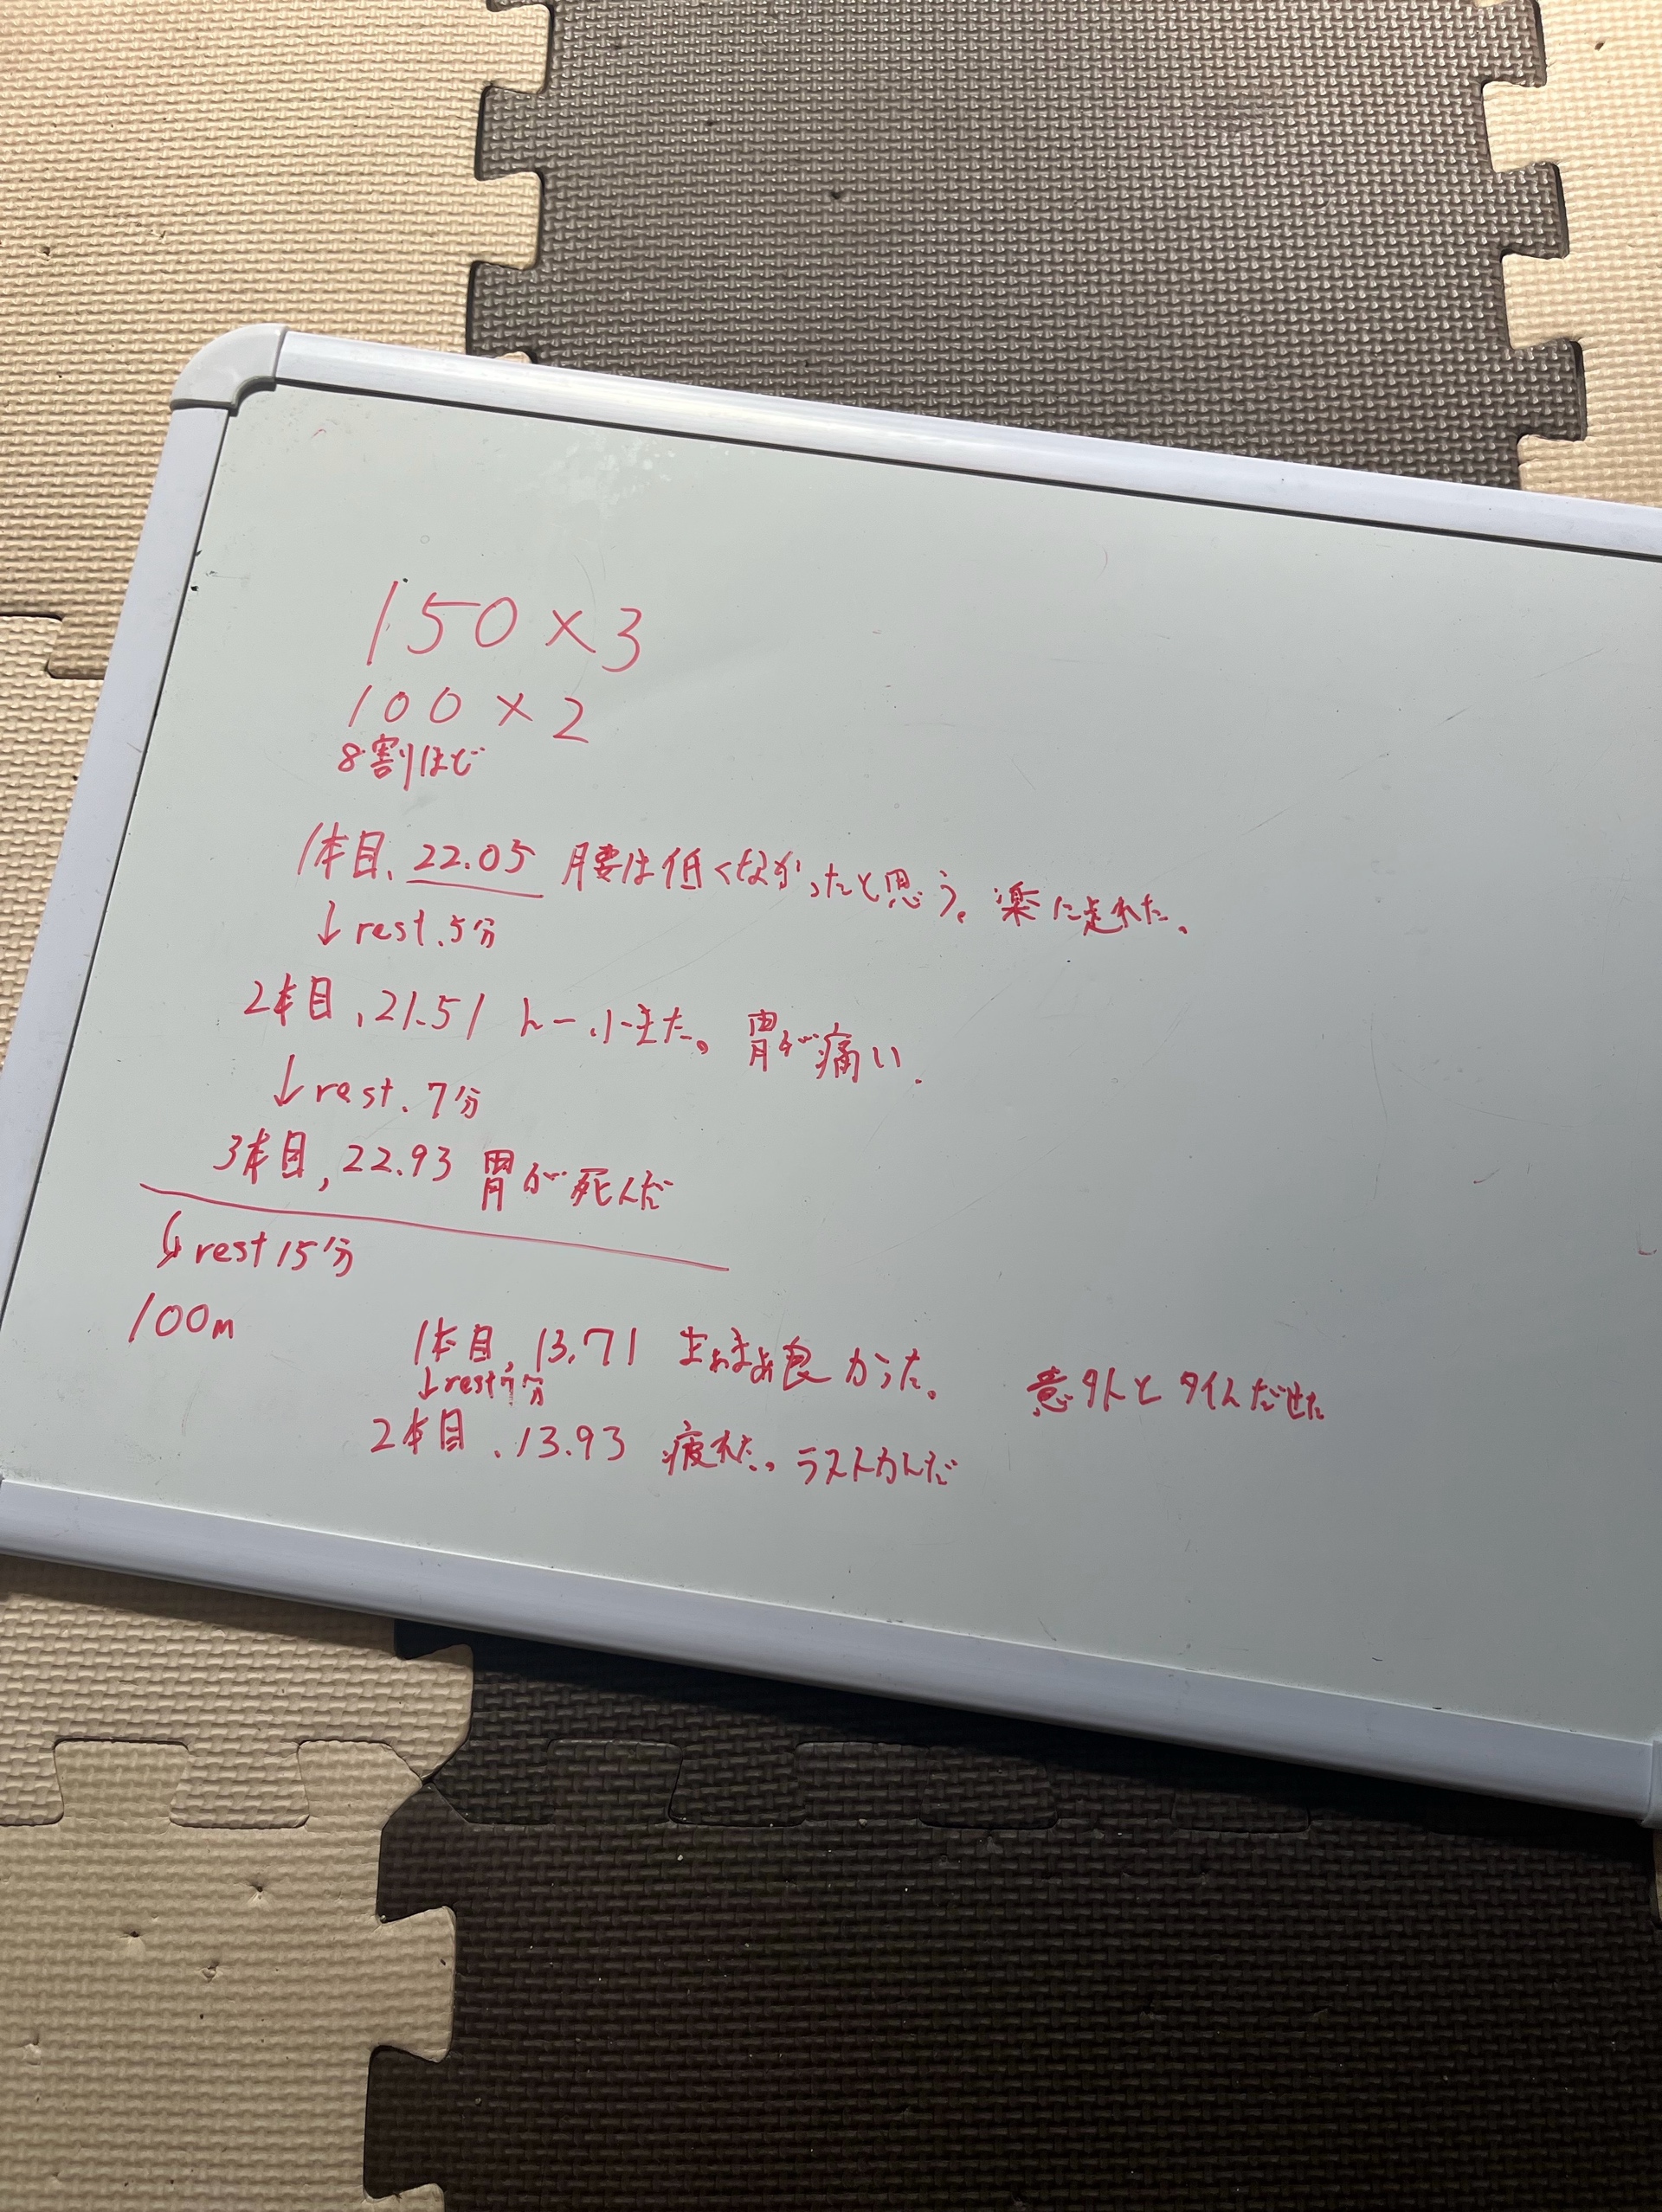 150×3
100×2
8割ほど
1本目、22.05 腰は低くなかったと思う。楽に走れた。
↓rest.5分
2本目、21.51 た。胃が痛い.
↓rest.7分
3本目,22.93 胃が死んだ
↓rest15分
100m
1本目,13.71 まぁまぁ良かった。 意外とタイムだせた
↓rest7分
2本目.13.93 疲れた。ラスト力んだ